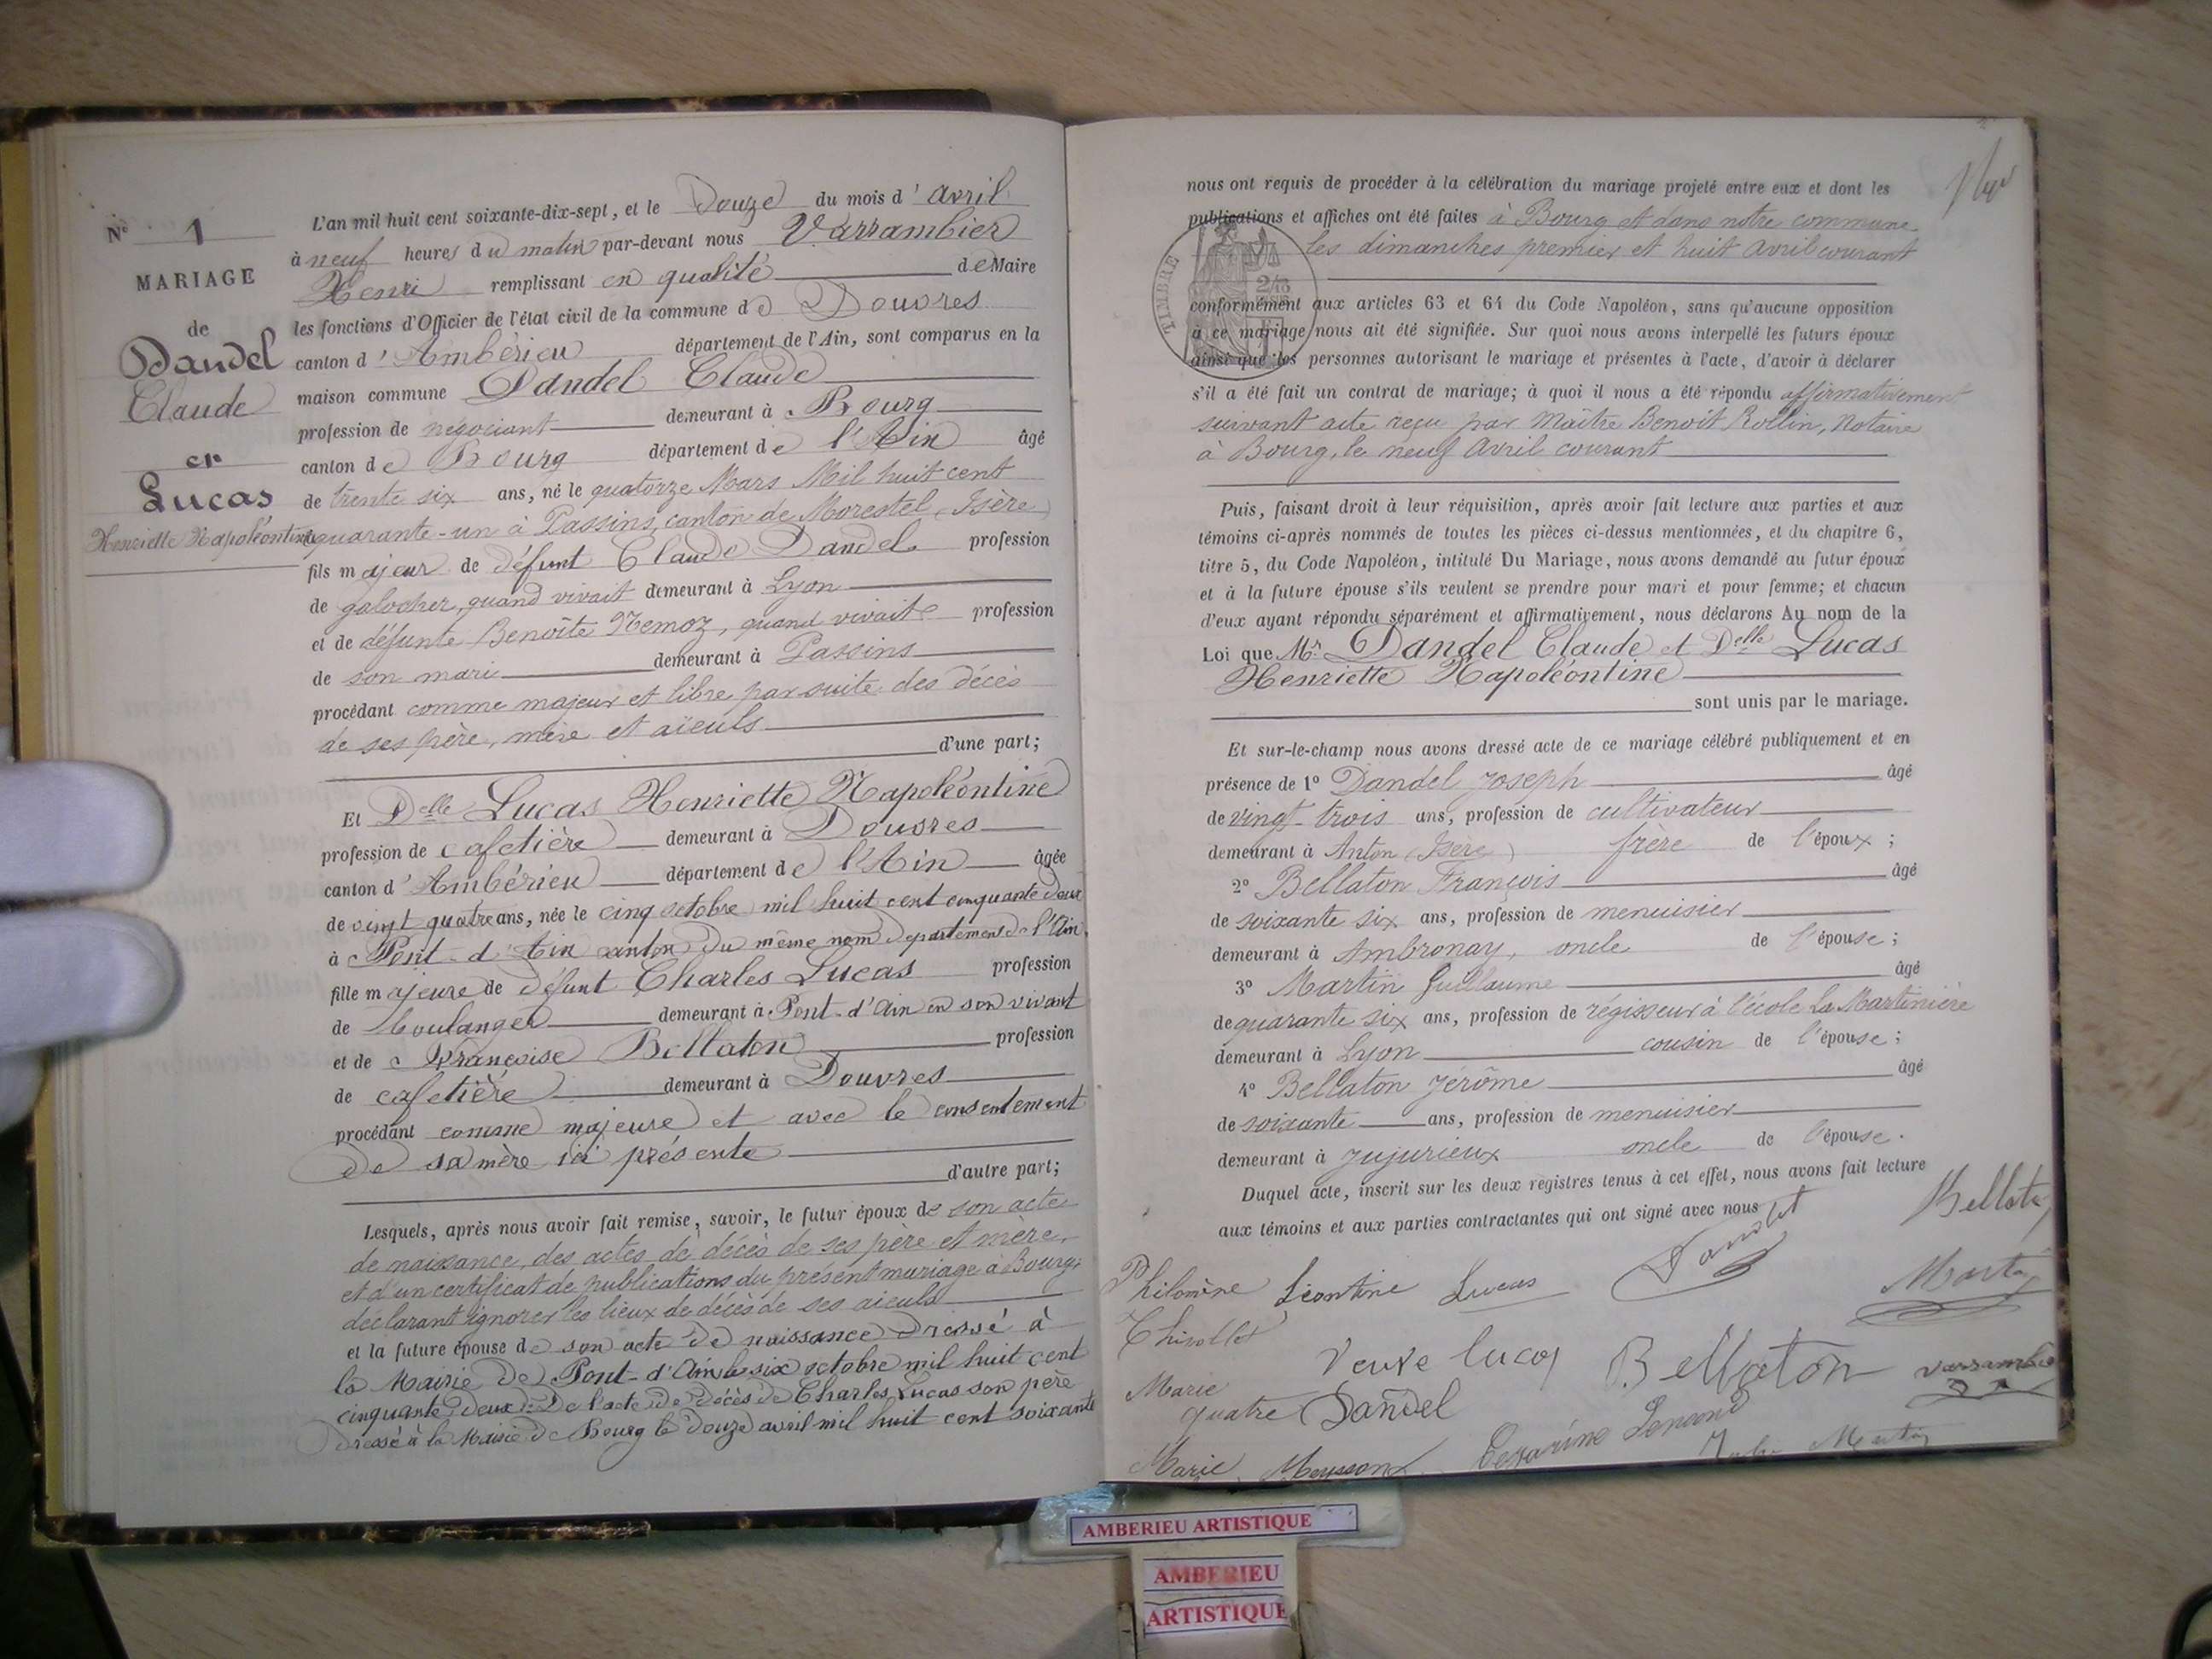 N° 1
MARIAGE
de
Dandel
Claude
et
Lucas
Henriette Napoléontine
L'an mil huit cent soixante-dix-sept, et le Douze du mois d'avril
à neuf heures du matin par-devant nous Varrambier
Henri remplissant en qualité de Maire
les fonctions d'Officier de l'état civil de la commune de Douvres
canton d'Ambérieu département de l'Ain, sont comparus en la
maison commune Dandel Claude
profession de négociant demeurant à Bourg
canton de Bourg département de l'Ain âgé
de trente six ans, né le quatorze Mars Mil huit cent
quarante-un à Passins, canton de Morestel (Isère)
fils majeur de défunt Claude Dandel profession
de galocher, quand vivait demeurant à Lyon
et de défunte Benoîte Nemoz, quand vivait profession
de son mari demeurant à Passins
procédant comme majeur et libre par suite des décès
de ses père, mère et aïeuls
d'une part;
Et Delle Lucas Henriette Napoléontine
profession de cafetière demeurant à Douvres
canton d'Ambérieu département de l'Ain âgée
de vingt quatre ans, née le cinq octobre mil huit cent cinquante deux
à Pont-d'Ain canton du même nom département de l'Ain
fille majeure de défunt Charles Lucas profession
de boulanger demeurant à Pont-d'Ain en son vivant
et de Françoise Bellaton profession
de cafetière demeurant à Douvres
procédant comme majeure et avec le consentement
de sa mère ici présente
d'autre part;
Lesquels, après nous avoir fait remise, savoir, le futur époux de son acte
de naissance, des actes de décès de ses père et mère,
et d'un certificat de publications du présent mariage à Bourg,
déclarant ignorer les lieux de décès de ses aïeuls
et la future épouse de son acte de naissance dressé à
la Mairie de Pont-d'Ain le six octobre mil huit cent
cinquante deux. De l'acte de décès de Charles Lucas son père
dressé à la Mairie de Bourg le douze avril mil huit cent soixante
nous ont requis de procéder à la célébration du mariage projeté entre eux et dont les
publications et affiches ont été faites à Bourg et dans notre commune
les dimanches premier et huit Avril courant
TIMBRE
conformément aux articles 63 et 64 du Code Napoléon, sans qu'aucune opposition
à ce mariage nous ait été signifiée. Sur quoi nous avons interpellé les futurs époux
ainsi que les personnes autorisant le mariage et présentes à l'acte, d'avoir à déclarer
s'il a été fait un contrat de mariage; à quoi il nous a été répondu affirmativement
suivant acte reçu par Maître Benoit Rollin, Notaire
à Bourg, le neuf Avril courant
Puis, faisant droit à leur réquisition, après avoir fait lecture aux parties et aux
témoins ci-après nommés de toutes les pièces ci-dessus mentionnées, et du chapitre 6,
titre 5, du Code Napoléon, intitulé Du Mariage, nous avons demandé au futur époux
et à la future épouse s'ils veulent se prendre pour mari et pour femme; et chacun
d'eux ayant répondu séparément et affirmativement, nous déclarons Au nom de la
Loi que Mr. Dandel Claude et Delle Lucas
Henriette Napoléontine
sont unis par le mariage.
Et sur-le-champ nous avons dressé acte de ce mariage célébré publiquement et en
présence de 1° Dandel Joseph âgé
de vingt-trois ans, profession de cultivateur
demeurant à Anton (Isère) frère de l'époux;
2° Bellaton François âgé
de soixante six ans, profession de menuisier
demeurant à Ambronay, oncle de l'épouse;
3° Martin Guillaume âgé
de quarante six ans, profession de régisseur à l'école La Martinière
demeurant à Lyon cousin de l'épouse;
4° Bellaton Jérôme âgé
de soixante ans, profession de menuisier
demeurant à Jujurieux oncle de l'épouse.
Duquel acte, inscrit sur les deux registres tenus à cet effet, nous avons fait lecture
aux témoins et aux parties contractantes qui ont signé avec nous
Philomène Léontine Lucas
Veuve Lucas Bellaton
Marie
quatre Dandel
Marie
AMBERIEU ARTISTIQUE
AMBERIEU
ARTISTIQUE